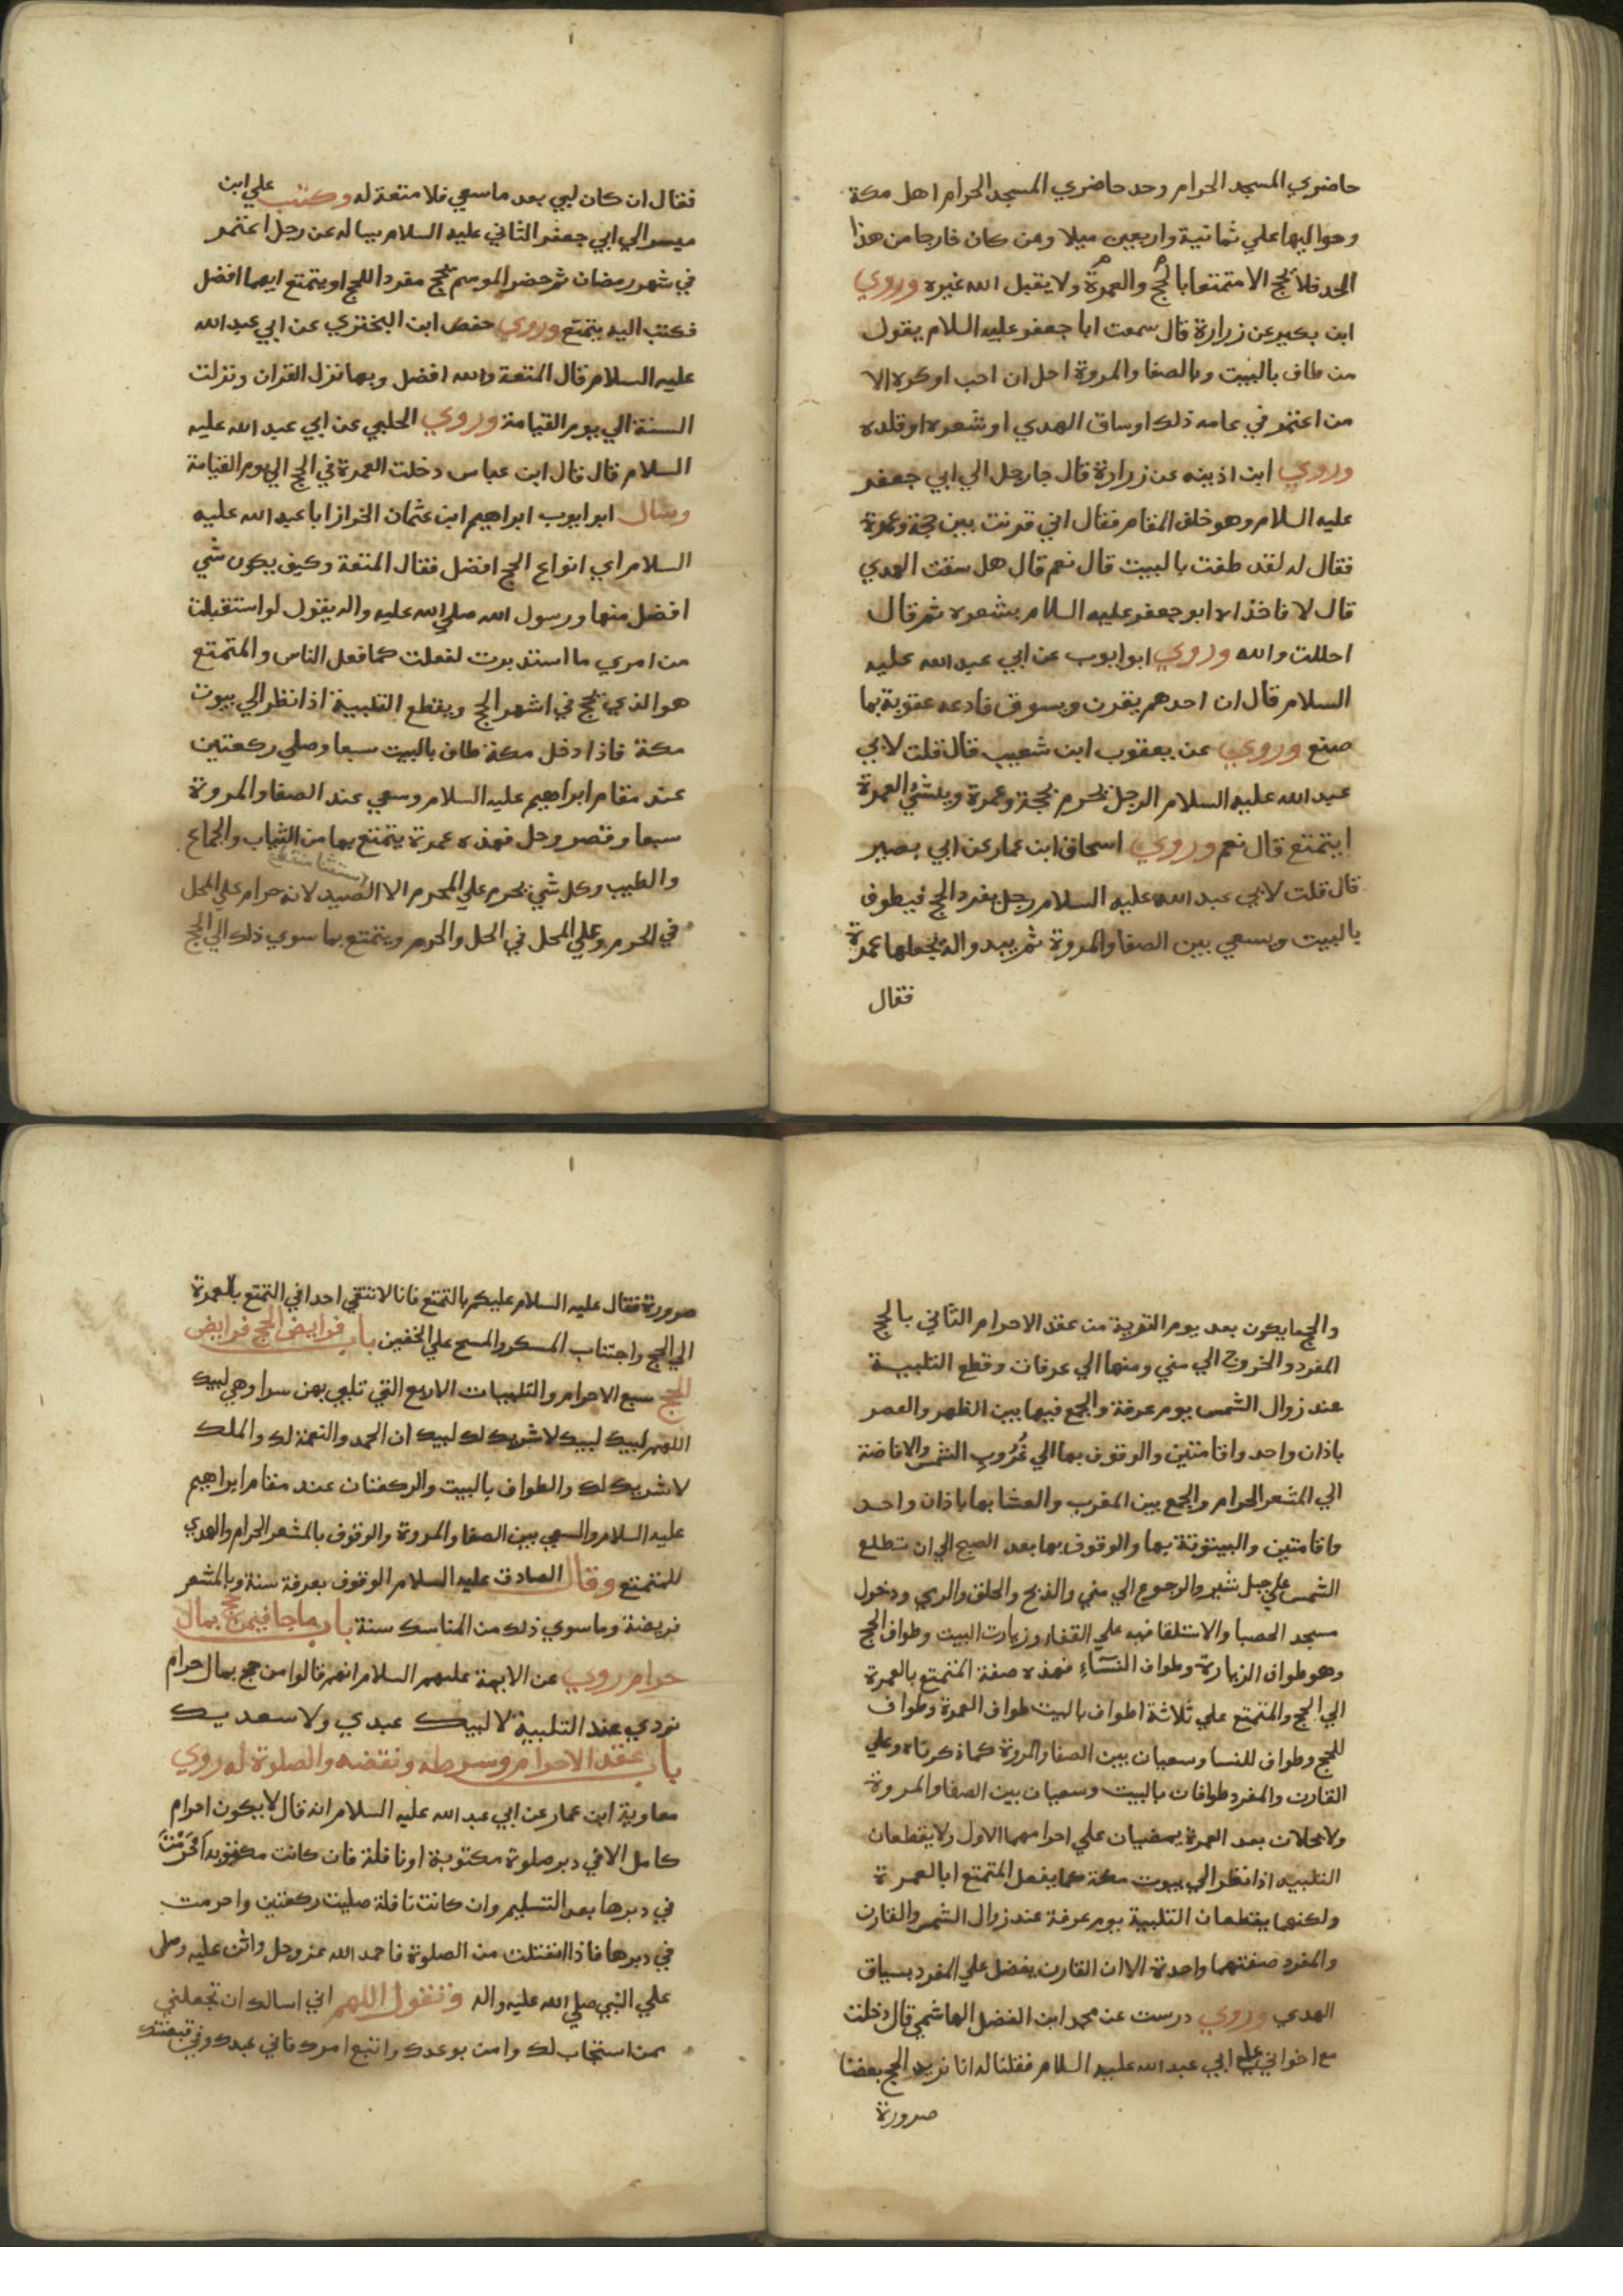 حاضري المسجد الحرام وحد حاضري المسجد الحرام اهل مكة
وحواليها علي ثمانية واربعين ميلا ومن كان خارجا من هذا
الحد فلا يحج الا متمتعا بالحج والعمرة ولا يقبل الله غيره وروي
ابن بكير عن زرارة قال سمعت ابا جعفر عليه السلام يقول
من طاف بالبيت وبالصفا والمروة احل ان احب او كره الا
من اعتمر في عامه ذلك او ساق الهدي او شعره او قلده
وروي ابن اذينه عن زرارة قال جا رجل الي ابي جعفر
عليه السلام وهو خلف المقام فقال اني قرنت بين حجة وعمرة
فقال له لقد طفت بالبيت قال نعم قال هل سقت الهدي
قال لا فاخذ ابو جعفر عليه السلام بشعره ثم قال
احللت والله وروي ابو ايوب عن ابي عبد الله عليه
السلام قال ان احدهم يقرن ويسوق فادعه عقوبة بما
صنع وروي عن يعقوب ابن شعيب قال قلت لابي
عبد الله عليه السلام الرجل يحرم بحجة وعمرة وينشئ العمرة
ايتمتع قال نعم وروي اسحاق ابن عمار عن ابي بصير
قال قلت لابي عبد الله عليه السلام رجل يفرد الحج فيطوف
بالبيت ويسعي بين الصفا والمروة ثم يبدو اله يجعلها عمرة
فقال
فقال ان كان لبي بعد ما سعي فلا متعة له وكتب علي ابن
ميسر الي ابي جعفر الثاني عليه السلام يساله عن رجل اعتمر
في شهر رمضان ثم حضر الموسم يحج مفردا للحج او يتمتع ايهما افضل
فكتب اليه يتمتع وروي حفص ابن البختري عن ابي عبد الله
عليه السلام قال المتعة والله افضل وبها نزل القران ونزلت
السنة الي يوم القيامة وروي الحلبي عن ابي عبد الله عليه
السلام قال قال ابن عباس دخلت العمرة في الحج الي يوم القيامة
وسال ابو ايوب ابراهيم ابن عثمان الخراز ابا عبد الله عليه
السلام اي انواع الحج افضل فقال المتعة وكيف يكون شي
افضل منها ورسول الله صلي الله عليه واله يقول لو استقبلت
من امري ما استدبرت لفعلت كما فعل الناس والمتمتع
هو الذي يحج في اشهر الحج ويقطع التلبية اذا نظر الي بيوت
مكة فاذا دخل مكة طاف بالبيت سبعا وصلي ركعتين
عند مقام ابراهيم عليه السلام وسعي عند الصفا والمروة
سبعا وقصر وحل فهذه عمرة يتمتع بها من الثياب والجماع
والطيب وكل شي يحرم علي المحرم الا الصيد لانه حرام علي المحل
في الحرم وعلي المحل في الحل والحرم ويتمتع بما سوي ذلك الي الحج
والحج ما يكون بعد يوم التروية من عقد الاحرام الثاني بالحج
المفرد والخروج الي مني ومنها الي عرفات وقطع التلبية
عند زوال الشمس يوم عرفة والجمع فيها بين الظهر والعصر
باذان واحد واقامتين والوقوف بها الي غُرُوب الشمس والافاضة
الي المشعر الحرام والجمع بين المغرب والعشا بها باذان واحد
واقامتين والبيتوتة بها والوقوف بها بعد الصبح الي ان تطلع
الشمس علي جبل ثبير والرجوع الي مني والذبح والحلق والرمي ودخول
مسجد الحصبا والاستلقا فيه علي القفا وزيارت البيت وطواف الحج
وهو طواف الزيارة وطواف النسآء فهذه صفة المتمتع بالعمرة
الي الحج والمتمتع علي ثلاثة اطواف بالبيت طواف العمرة وطواف
للحج وطواف للنسا وسعيان بين الصفا والمروة كما ذكرناه وعلي
القارن والمفرد طوافان بالبيت وسعيان بين الصفا والمروة
ولا يحلان بعد العمرة يمضيان علي احرامهما الاول ولا يقطعان
التلبيه اذا نظر الي بيوت مكة كما يفعل المتمتع ابالعمرة
ولكنهما يقطعان التلبية يوم عرفة عند زوال الشمس والقارن
والمفرد صفتهما واحدة الا ان القارن يفضل علي المفرد بسياق
الهدي وروي درست عن محمد ابن الفضل الهاشمي قال دخلت
مع اخواني علي ابي عبد الله عليه السلام فقلنا له انا نريد الحج بعضنا
صرورة
صرورة فقال عليه السلام عليكم بالتمتع فانا لا نتقي احدا في التمتع بالعمرة
الي الحج واجتناب المسكر والمسح علي الخفين باب فرايض الحج فرايض
الحج سبع الاحرام والتلبيات الاربع التي تلبي بهن سرا وهي لبيك
اللهم لبيك لبيك لا شريك لك لبيك ان الحمد والنعمة لك والملك
لا شريك لك والطواف بالبيت والركعتان عند مقام ابراهيم
عليه السلام والسعي بين الصفا والمروة والوقوف بالمشعر الحرام والهدي
للمتمتع وقال الصادق عليه السلام الوقوف بعرفة سنة وبالمشعر
فريضة وما سوي ذلك من المناسك سنة باب ما جا فيمن حج بمال
حرام روي عن الايمة عليهم السلام انهم قالوا من حج بمال حرام
نودي عند التلبية لا لبيك عبدي ولا سعديك
باب عقد الاحرام وشرطه ونقضه والصلوة له روي
معاوية ابن عمار عن ابي عبد الله عليه السلام انه قال لا يكون احرام
كامل الا في دبر صلوة مكتوبة او نافلة فان كانت مكتوبه احرمت
في دبرها بعد التسليم وان كانت نافلة صليت ركعتين واحرمت
في دبرها فاذا انفتلت من الصلوة فاحمد الله عز وجل واثن عليه وصل
علي النبي صلي الله عليه واله وتقول اللهم اني اسالك ان تجعلني
ممن استجاب لك وامن بوعدك واتبع امرك فاني عبدك وفي قبضتك